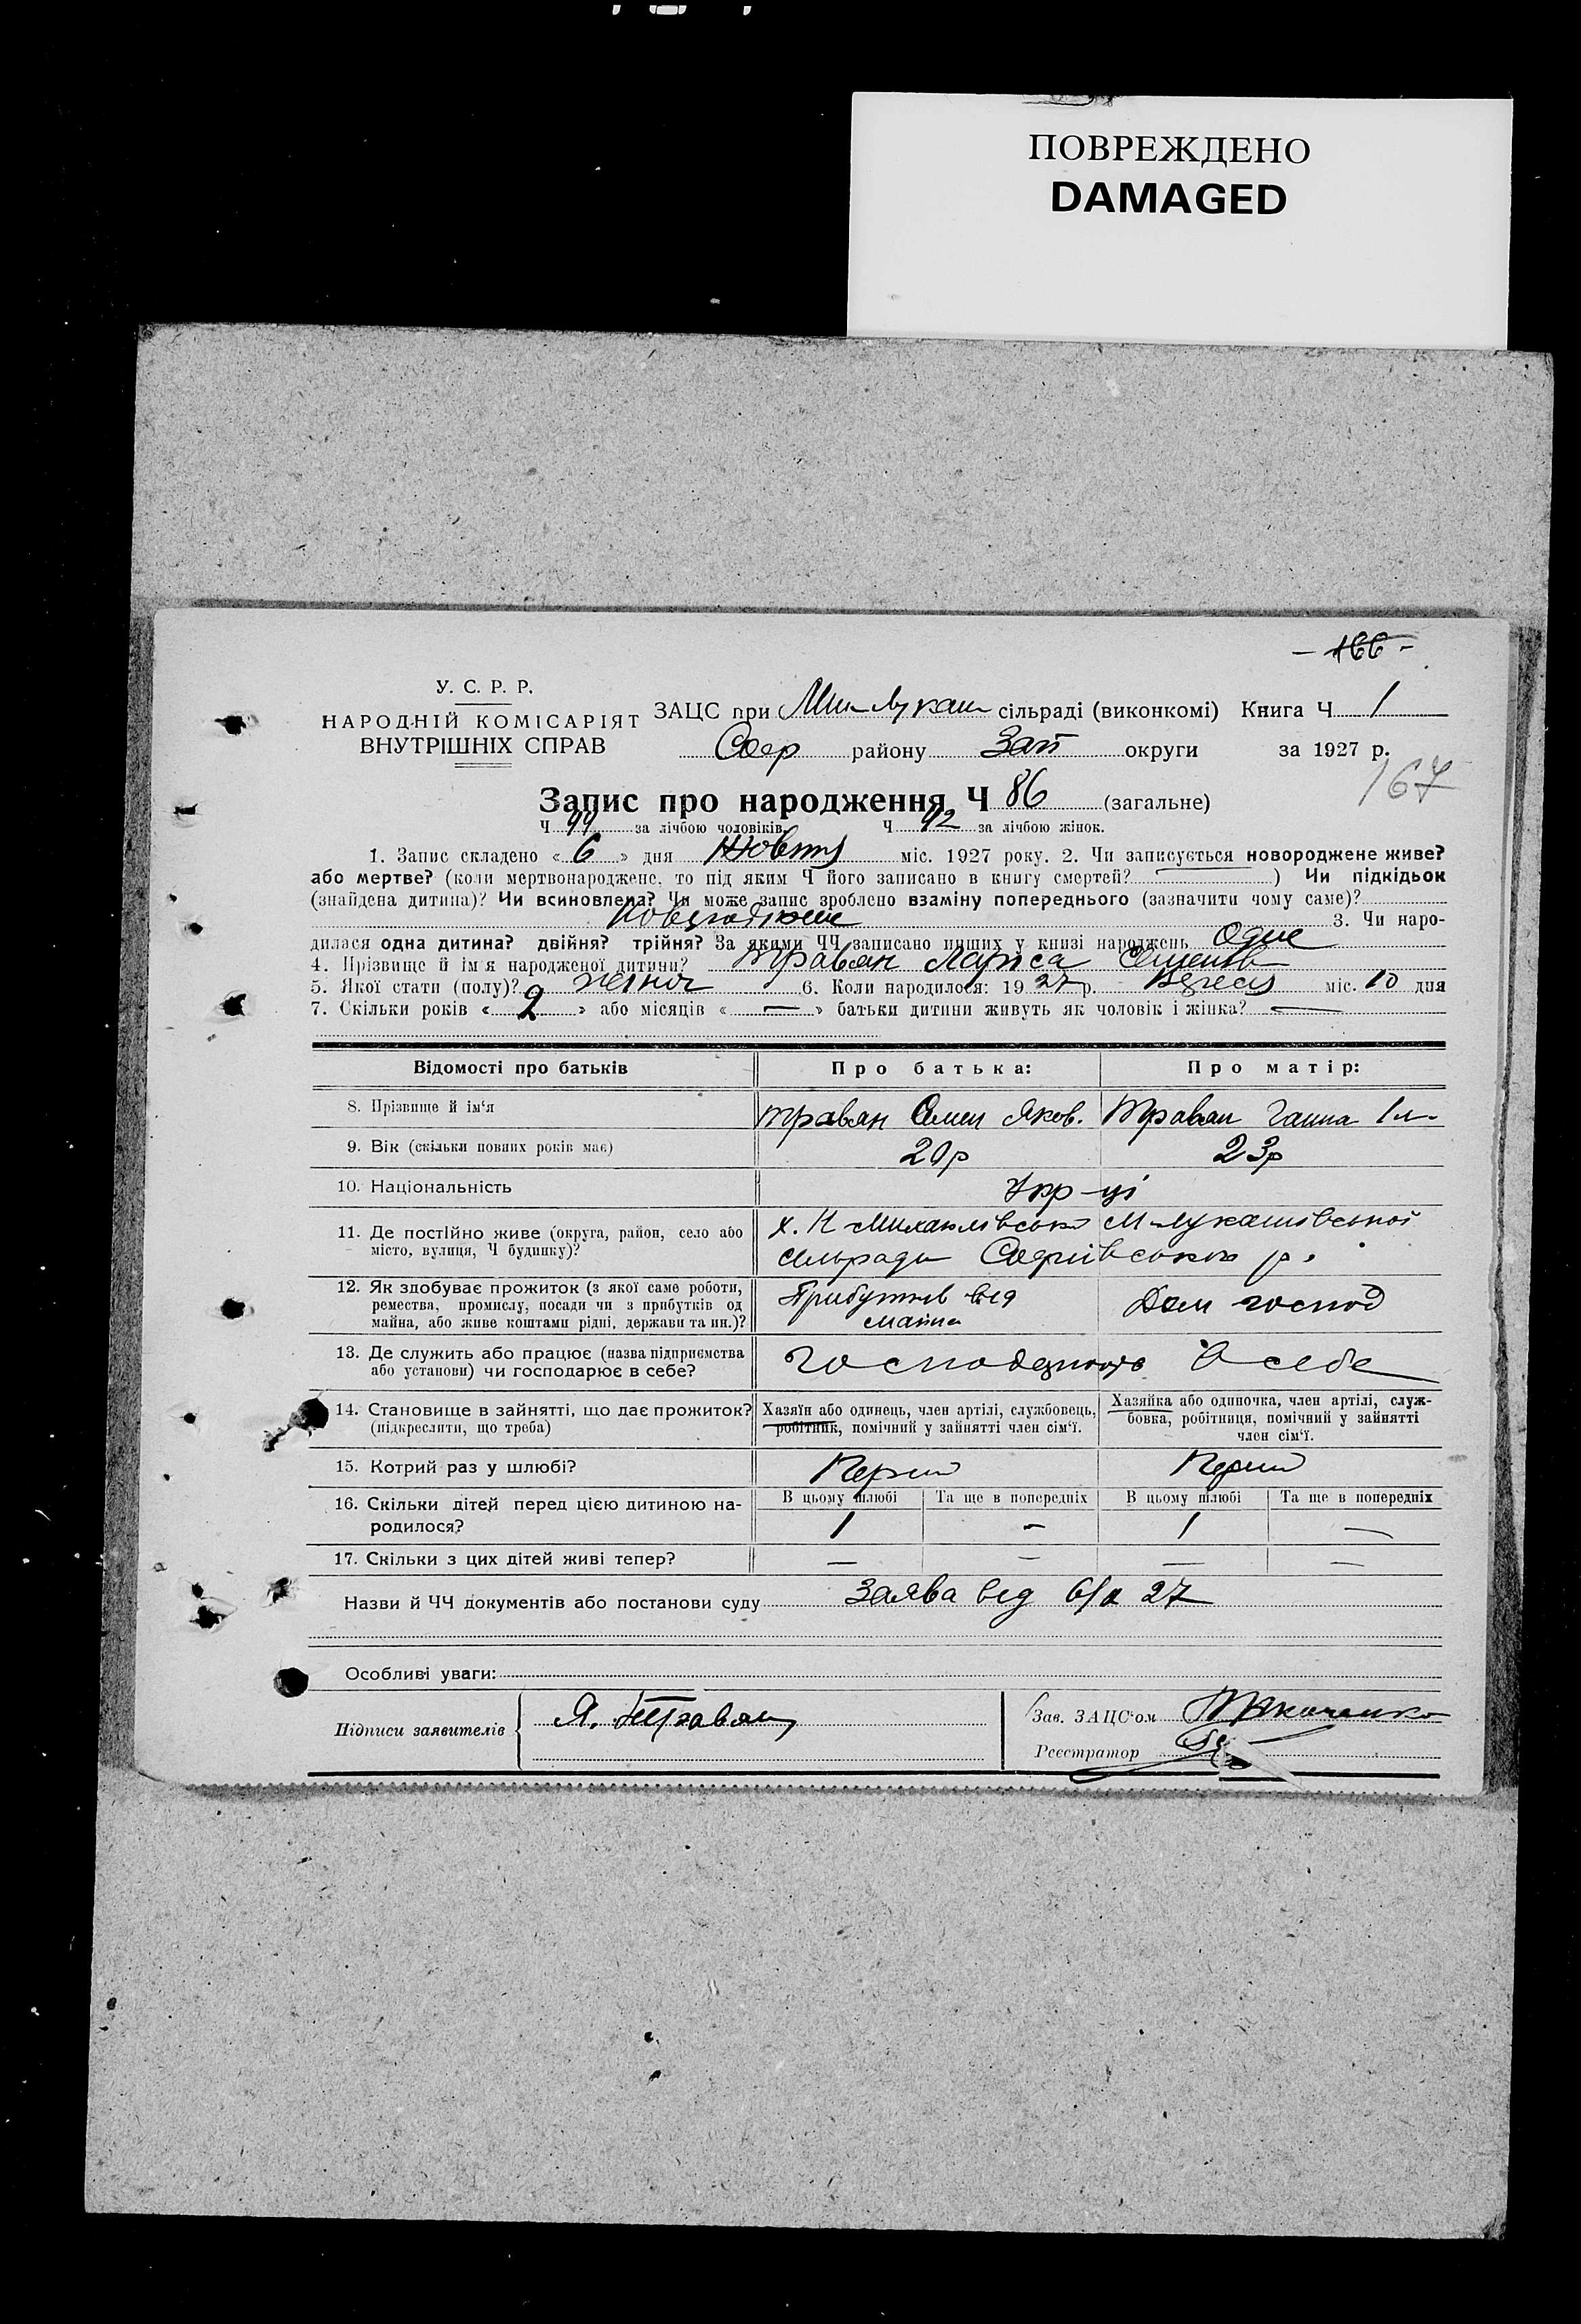 ПОВРЕЖДЕНО
DAMAGED
- 166 -
У. С. Р. Р.
НАРОДНІЙ КОМІСАРІЯТ
ВНУТРІШНІХ СПРАВ
ЗАЦС при Мик-Лукаш сільраді (виконкомі) Книга Ч 1
Софр району Зап округи за 1927 р.
167
Запис про народження Ч 86 (загальне)
Ч 44 за лічбою чоловіків. Ч 42 за лічбою жінок.
1. Запис складено « 6 » дня Жовтня міс. 1927 року. 2. Чи записується новороджене живе?
або мертве? (коли мертвонароджене, то під яким Ч його записано в книгу смертей? — ) Чи підкідьок
(знайдена дитина)? Чи всиновлена? Чи може запис зроблено взаміну попереднього (зазначити чому саме)?
3. Чи наро-
дилася одна дитина? двійня? трійня? За якими ЧЧ записано инших у книзі народжень Одне
4. Прізвище й ім'я народженої дитини? Траван Лариса Семенів
5. Якої стати (полу)? жіноч 6. Коли народилося: 1927 р. Вересн міс. 10 дня
7. Скільки років « 2 » або місяців « — » батьки дитини живуть як чоловік і жінка? —
Відомості про батьків Про батька: Про матір:
8. Прізвище й ім'я Траван Семен Яков. Траван Ганна
9. Вік (скільки повних років має) 20р 23р
10. Національність Укр-ці
11. Де постійно живе (округа, район, село або х. Н Михайлівськ М-Лукашівської
місто, вулиця, Ч будинку)? сільради Софіївського р.
12. Як здобуває прожиток (з якої саме роботи, Прибутків від Дом господ
ремества, промислу, посади чи з прибутків од майна
майна, або живе коштами рідні, держави та ин.)?
13. Де служить або працює (назва підприємства господарюють в себе
або установи) чи господарює в себе?
14. Становище в зайнятті, що дає прожиток? Хазяїн або одинець, член артілі, службовець, Хазяйка або одиночка, член артілі, служ-
(підкреслити, що треба) робітник, помічний у зайнятті член сім'ї. бовка, робітниця, помічний у зайнятті
член сім'ї.
15. Котрий раз у шлюбі? Перший Перший
16. Скільки дітей перед цією дитиною на- В цьому шлюбі Та ще в попередніх В цьому шлюбі Та ще в попередніх
родилося? 1 - 1 —
17. Скільки з цих дітей живі тепер? — — — —
Назви й ЧЧ документів або постанови суду Заява від 6/X 27
Особливі уваги:
Підписи заявителів Я. Траван Зав. ЗАЦС'ом
Реєстратор